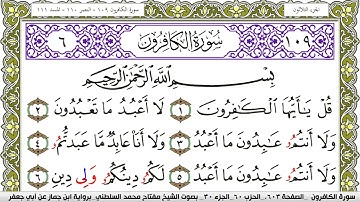 الجزء الثلاثون
سورة الكافرون ١٠٩ - النصر ١١٠ - المسد ١١١
١٠٩ سورة الكافرون ٦
بسم الله الرحمن الرحيم
قُلْ يَٰأَيُّهَا ٱلْكَٰفِرُونَ ١ لَا أَعْبُدُ مَا تَعْبُدُونَ ٢
وَلَا أَنتُمُ عَٰبِدُونَ مَا أَعْبُدُ ٣ وَلَا أَنَا عَابِدٌ مَا عَبَدتُّمُ ٤
وَلَا أَنتُمُ عَٰبِدُونَ مَا أَعْبُدُ ٥ لَكُمُ دِينُكُمُ وَلِي دِينِ ٦
سورة الكافرون - الصفحة ٦٠٣ - الحزب ٦٠ - الجزء ٣٠ - بصوت الشيخ مفتاح محمد السلطني - برواية ابن جماز عن أبي جعفر